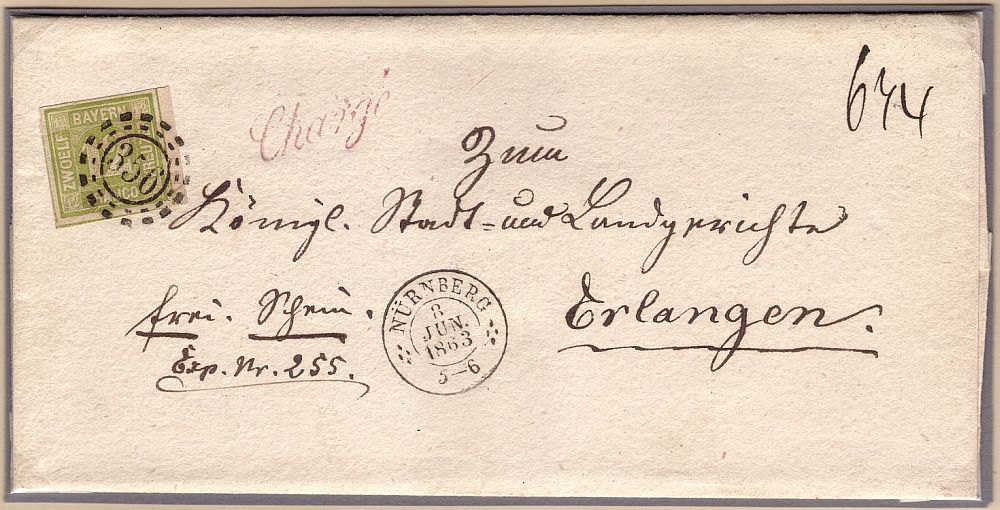 BAYERN
ZWOELF
FRANCO
356
Chargé
644
Zum
Königl. Stadt- und Landgerichte
Erlangen.
frei. Schein.
Exp. Nr. 255.
NÜRNBERG
8
JUN.
1863
5-6